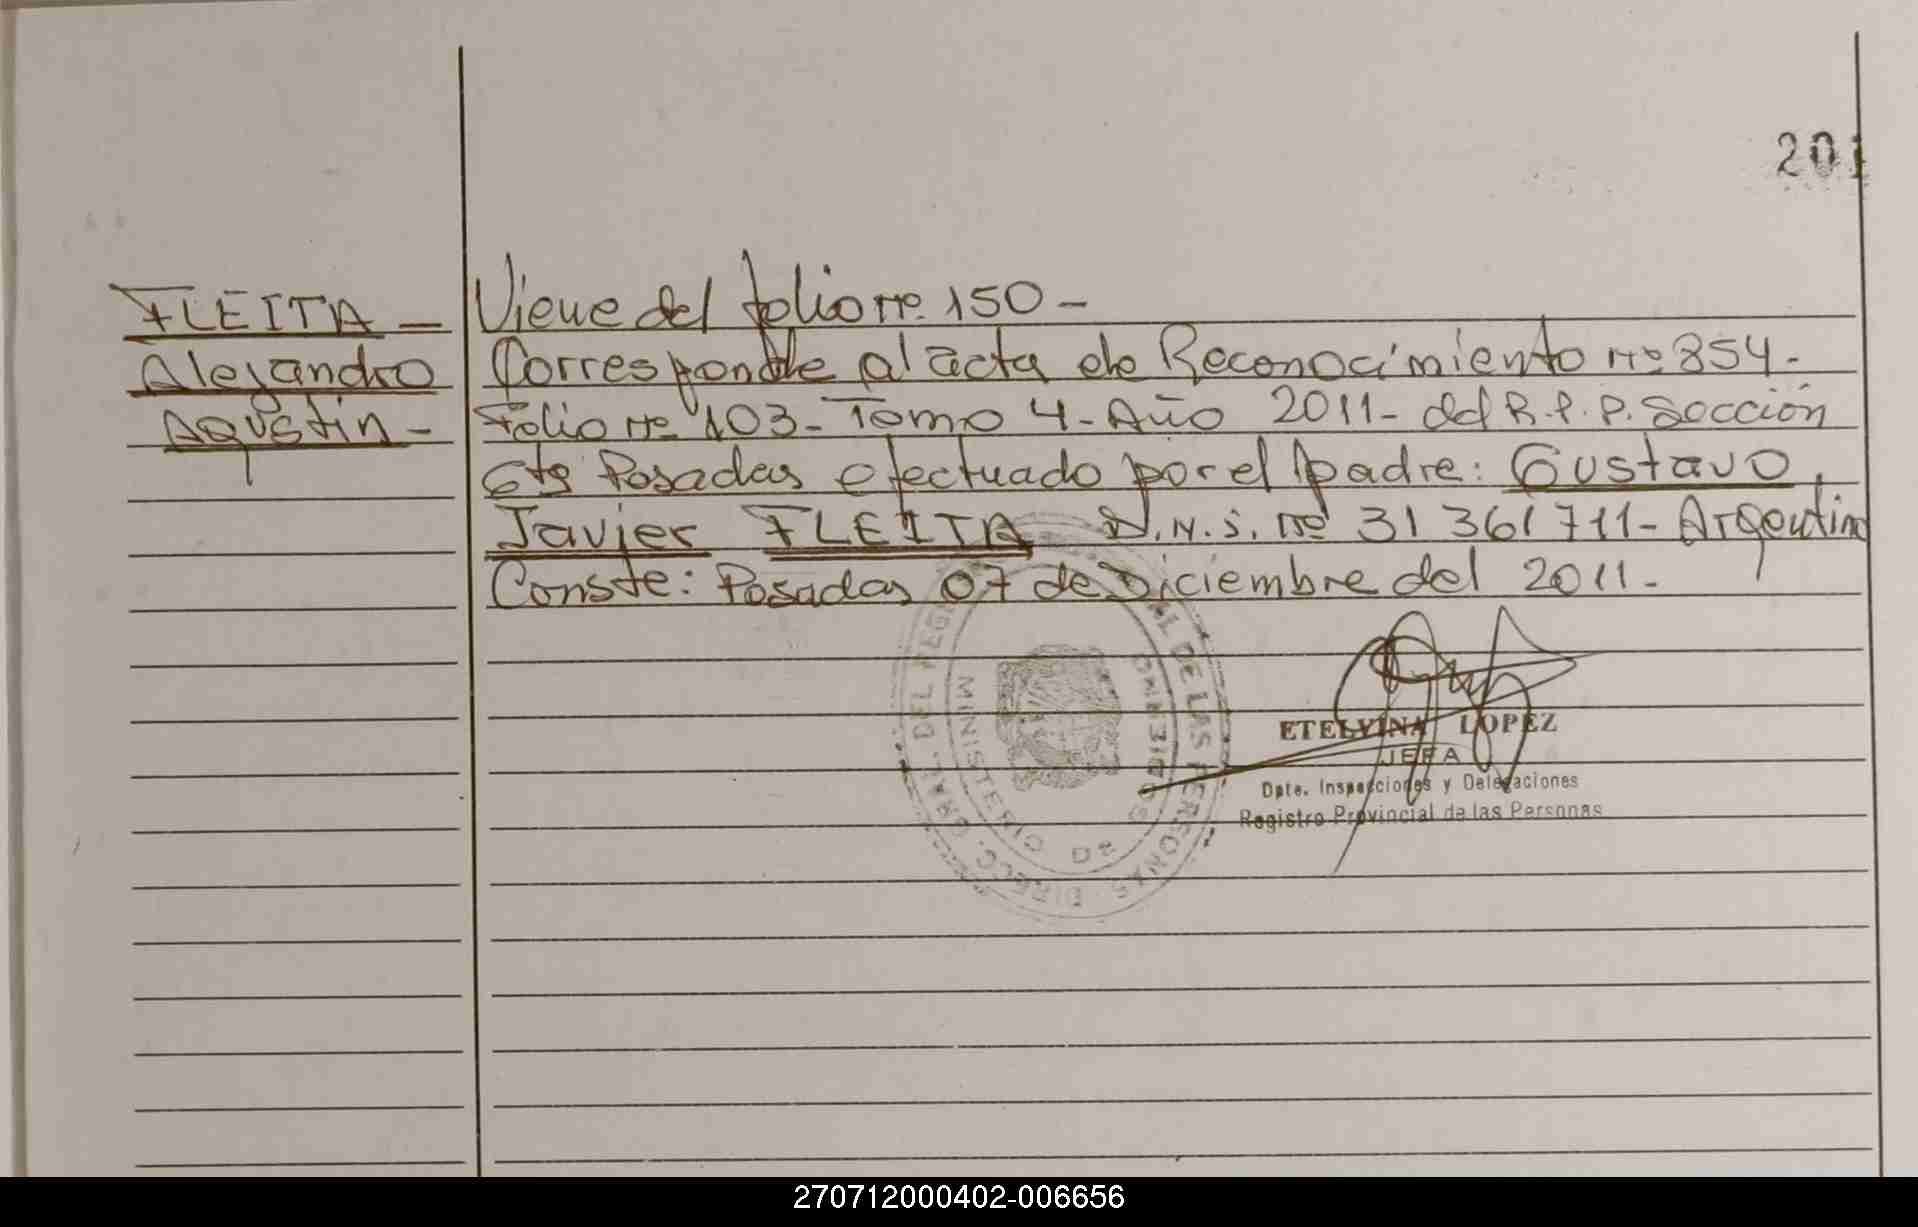 201
FLEITA -
Alejandro
Agustin -
Viene del folio nº 150 -
Corresponde al acta de Reconocimiento nº 854 -
Folio nº 103 - Tomo 4 - Año 2011 - del R.P.P. Sección
6ta Posadas efectuado por el padre: Gustavo
Javier FLEITA D.N.I. nº 31 361 711 - Argentino
Conste: Posadas 07 de Diciembre del 2011 -
ETELVINA LOPEZ
JEFA
Dpte. Inspecciones y Delegaciones
Registro Provincial de las Personas
DIRECC. GRAL. DEL DE LAS PERSONAS
MINISTERIO DE GOBIERNO
270712000402-006656